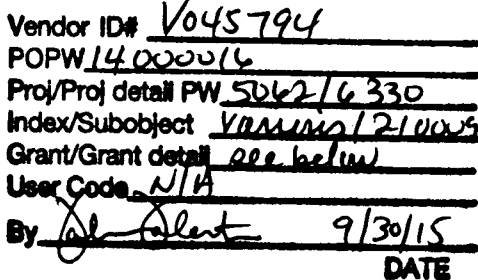 Vendor ID# V045794
POPW 14000016
Proj/Proj detail PW 5062/6330
Index/Subobject Various/210009
Grant/Grant detail see below
User Code N/A
By 9/30/15
DATE